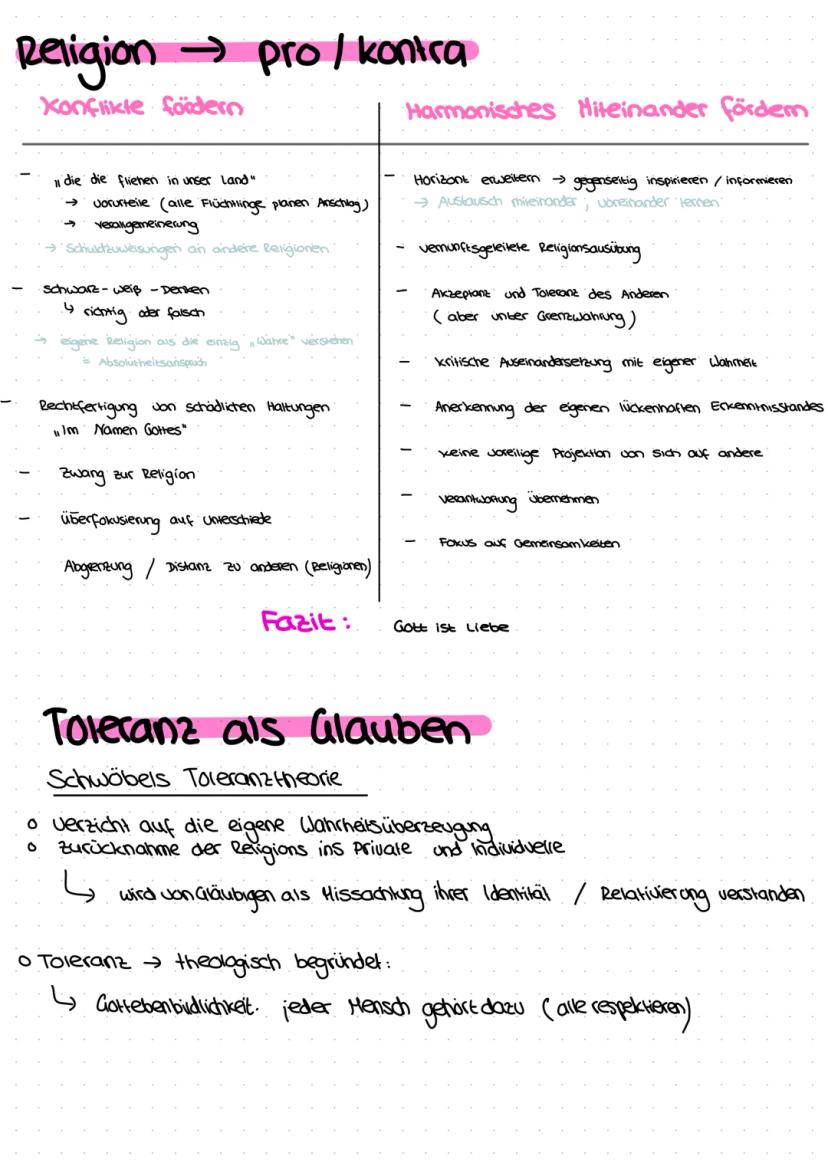 Religion → pro / kontra
Konflikte fördern
- „die die fliehen in unser Land"
→ Vorurteile (alle Flüchtlinge planen Anschlag)
→ Verallgemeinerung
→ Schuldzuweisungen an andere Religionen
- Schwarz-weiß-Denken
↳ richtig oder falsch
→ eigene Religion als die einzig „Wahre" verstehen
= Absolutheitsanspruch
- Rechtfertigung von schädlichen Haltungen
„Im Namen Gottes"
- Zwang zur Religion
- Überfokusierung auf Unterschiede
Abgrenzung / Distanz zu anderen (Religionen)
Harmonisches Miteinander fördern
- Horizont erweitern → gegenseitig inspirieren / informieren
→ Austausch miteinander, voneinander lernen
- vernunftsgeleitete Religionsausübung
- Akzeptanz und Toleranz des Anderen
(aber unter Grenzwahrung)
- kritische Auseinandersetzung mit eigener Wahrheit
- Anerkennung der eigenen lückenhaften Erkenntnisstandes
- keine voreilige Projektion von sich auf andere
- Verantwortung übernehmen
- Fokus auf Gemeinsamkeiten
Fazit: Gott ist Liebe
Toleranz als Glauben
Schwöbels Toleranztheorie
o Verzicht auf die eigene Wahrheitsüberzeugung
o Zurücknahme der Religions ins Private und Individuelle
↳ wird von Gläubigen als Missachtung ihrer Identität / Relativierung verstanden
o Toleranz → theologisch begründet:
↳ Gottebenbildlichkeit. jeder Mensch gehört dazu (alle respektieren)